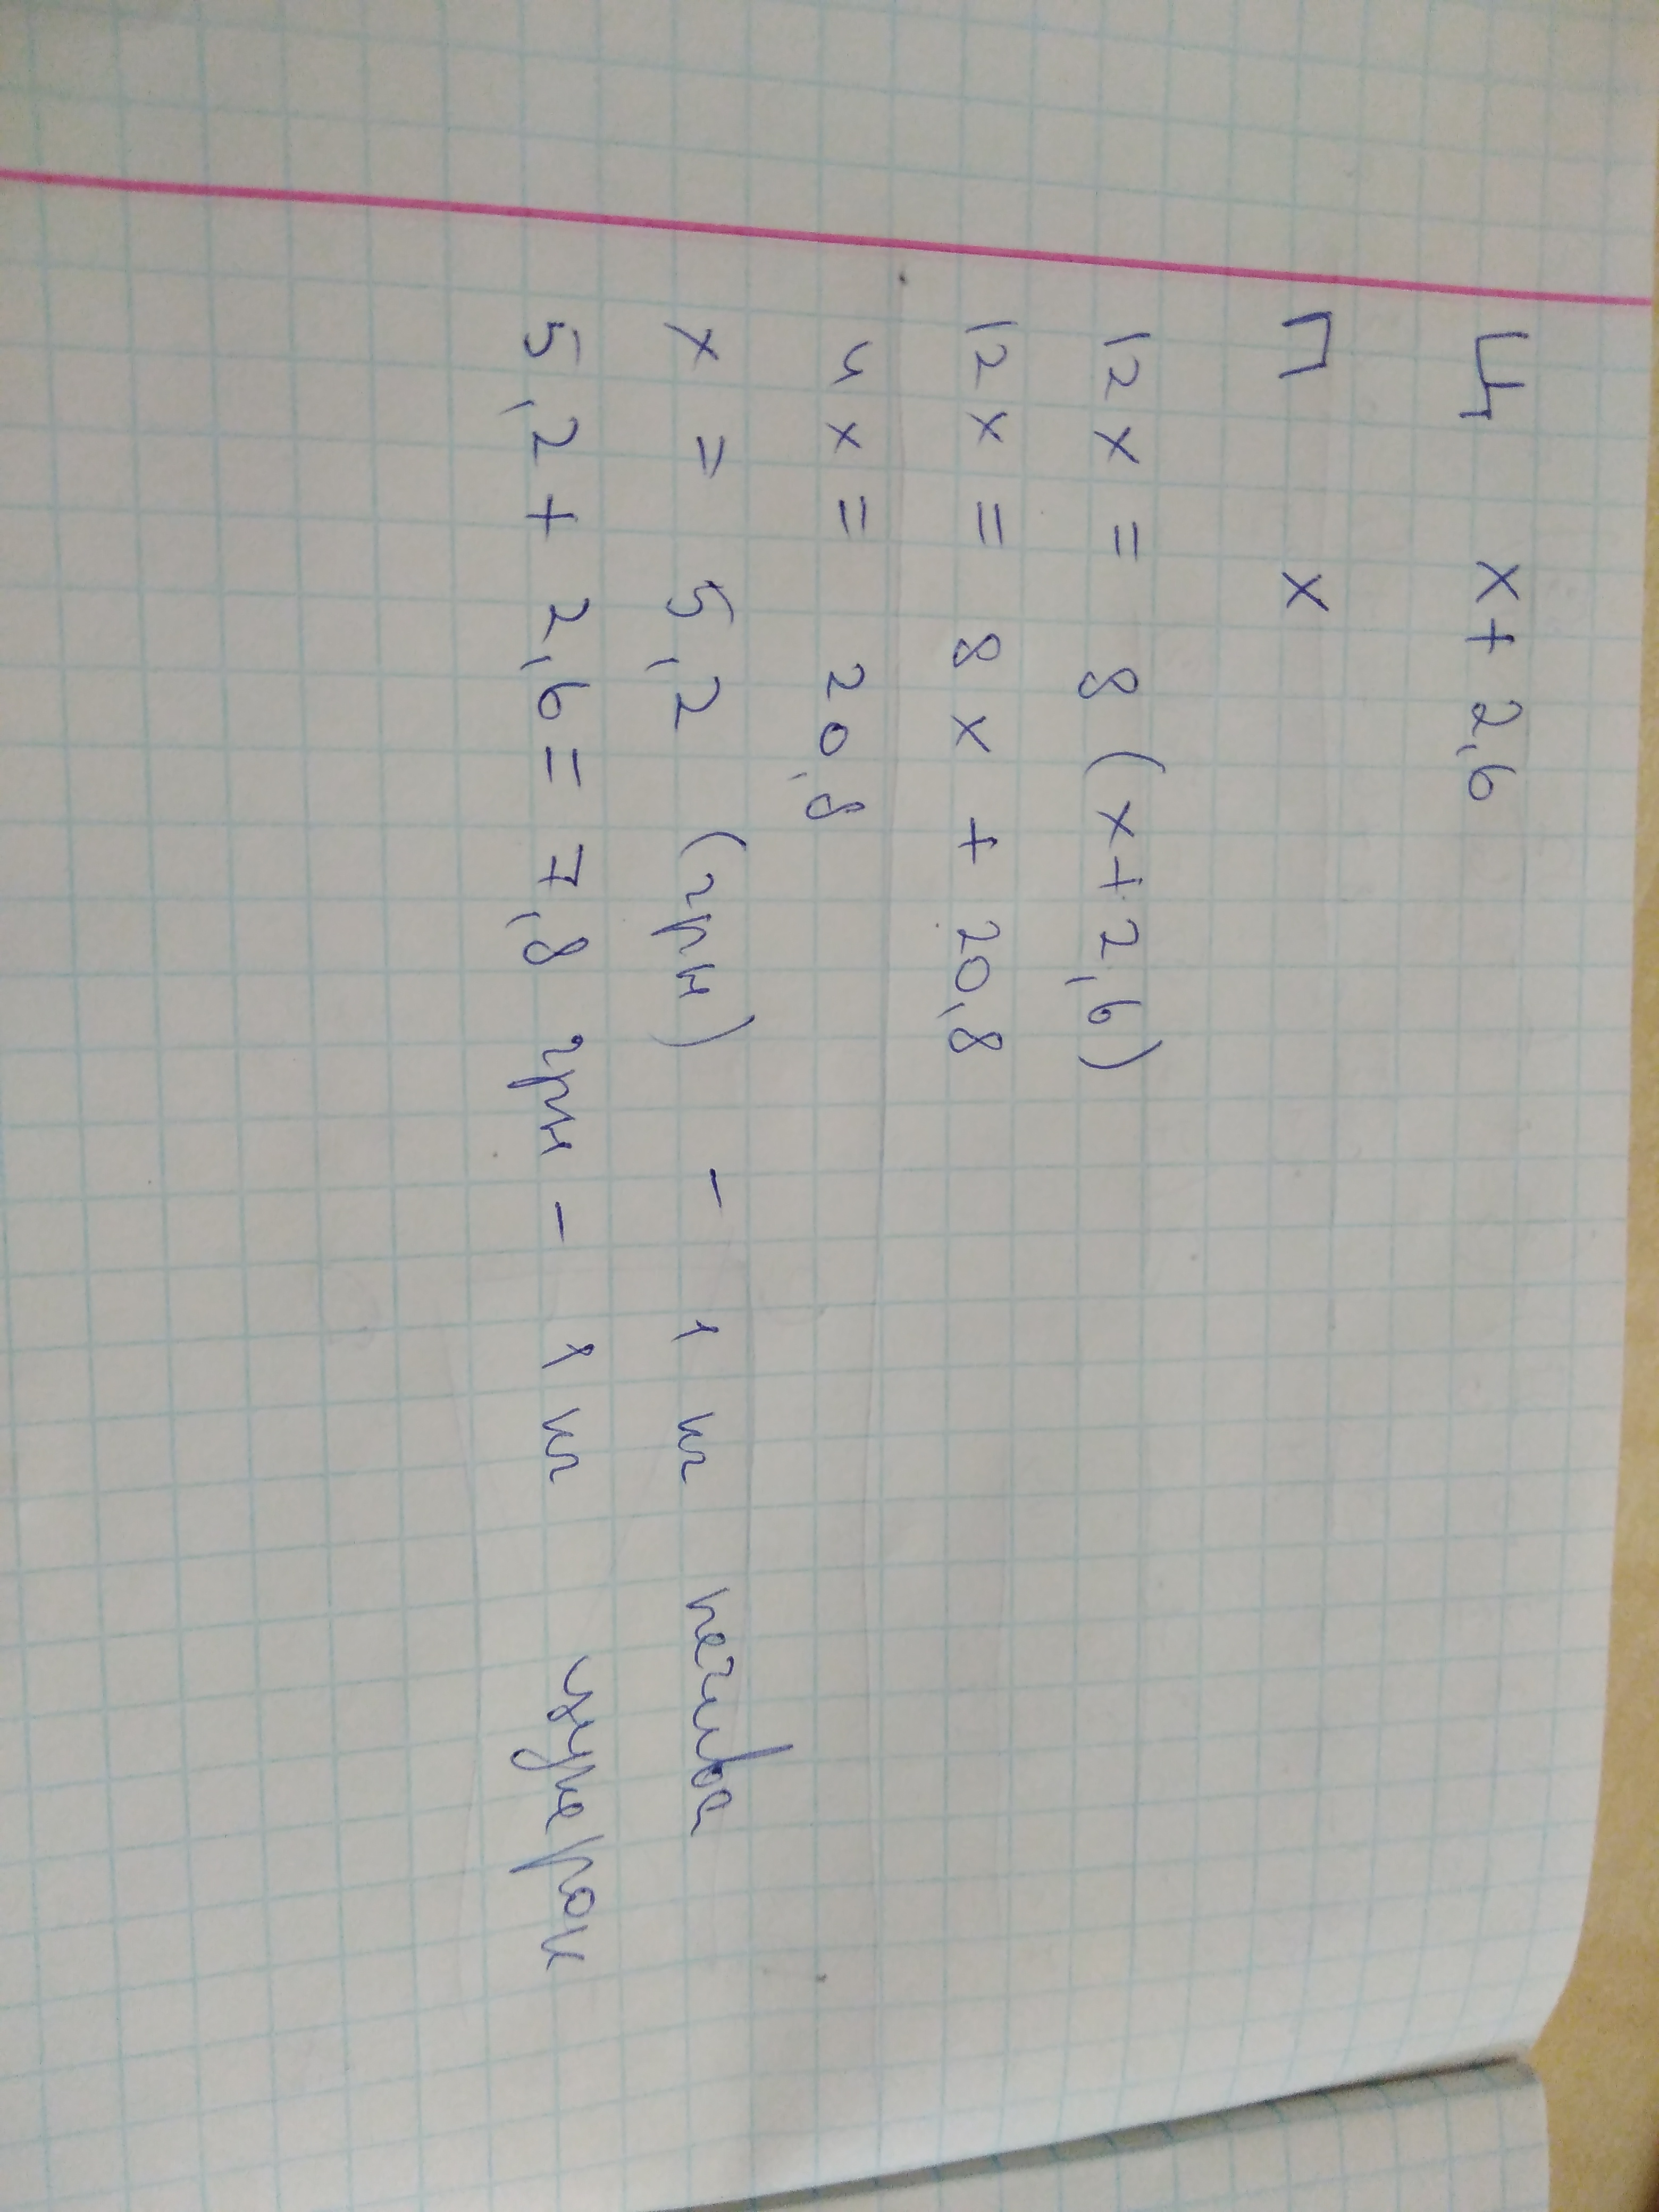 Ц x + 2,6
П x
12x = 8(x+2,6)
12x = 8x + 20,8
4x = 20,8
x = 5,2 (грн) - 1 кг печива
5,2 + 2,6 = 7,8 грн - 1 кг цукерок